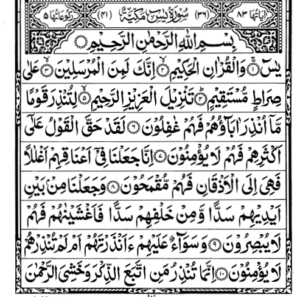 اٰیاتُها ۸۳ (۳۶) سُوْرَةُ یٰسٓ مَكِّیَّةٌ (۴۱) رُكُوْعَاتُها ۵
بِسْمِ اللّٰهِ الرَّحْمٰنِ الرَّحِیْمِ
یٰسٓ وَالْقُرْاٰنِ الْحَكِیْمِ اِنَّكَ لَمِنَ الْمُرْسَلِیْنَ عَلٰی
صِرَاطٍ مُّسْتَقِیْمٍ تَنْزِیْلَ الْعَزِیْزِ الرَّحِیْمِ لِتُنْذِرَ قَوْمًا
مَّاۤ اُنْذِرَ اٰبَآؤُهُمْ فَهُمْ غٰفِلُوْنَ ۶ لَقَدْ حَقَّ الْقَوْلُ عَلٰۤی
اَكْثَرِهِمْ فَهُمْ لَا یُؤْمِنُوْنَ ۷ اِنَّا جَعَلْنَا فِیْۤ اَعْنَاقِهِمْ اَغْلٰلًا
فَهِیَ اِلَی الْاَذْقَانِ فَهُمْ مُّقْمَحُوْنَ ۸ وَجَعَلْنَا مِنْۢ بَیْنِ
اَیْدِیْهِمْ سَدًّا وَّمِنْ خَلْفِهِمْ سَدًّا فَاَغْشَیْنٰهُمْ فَهُمْ
لَا یُبْصِرُوْنَ ۹ وَسَوَآءٌ عَلَیْهِمْ ءَاَنْذَرْتَهُمْ اَمْ لَمْ تُنْذِرْهُمْ
لَا یُؤْمِنُوْنَ ۱۰ اِنَّمَا تُنْذِرُ مَنِ اتَّبَعَ الذِّكْرَ وَخَشِیَ الرَّحْمٰنَ